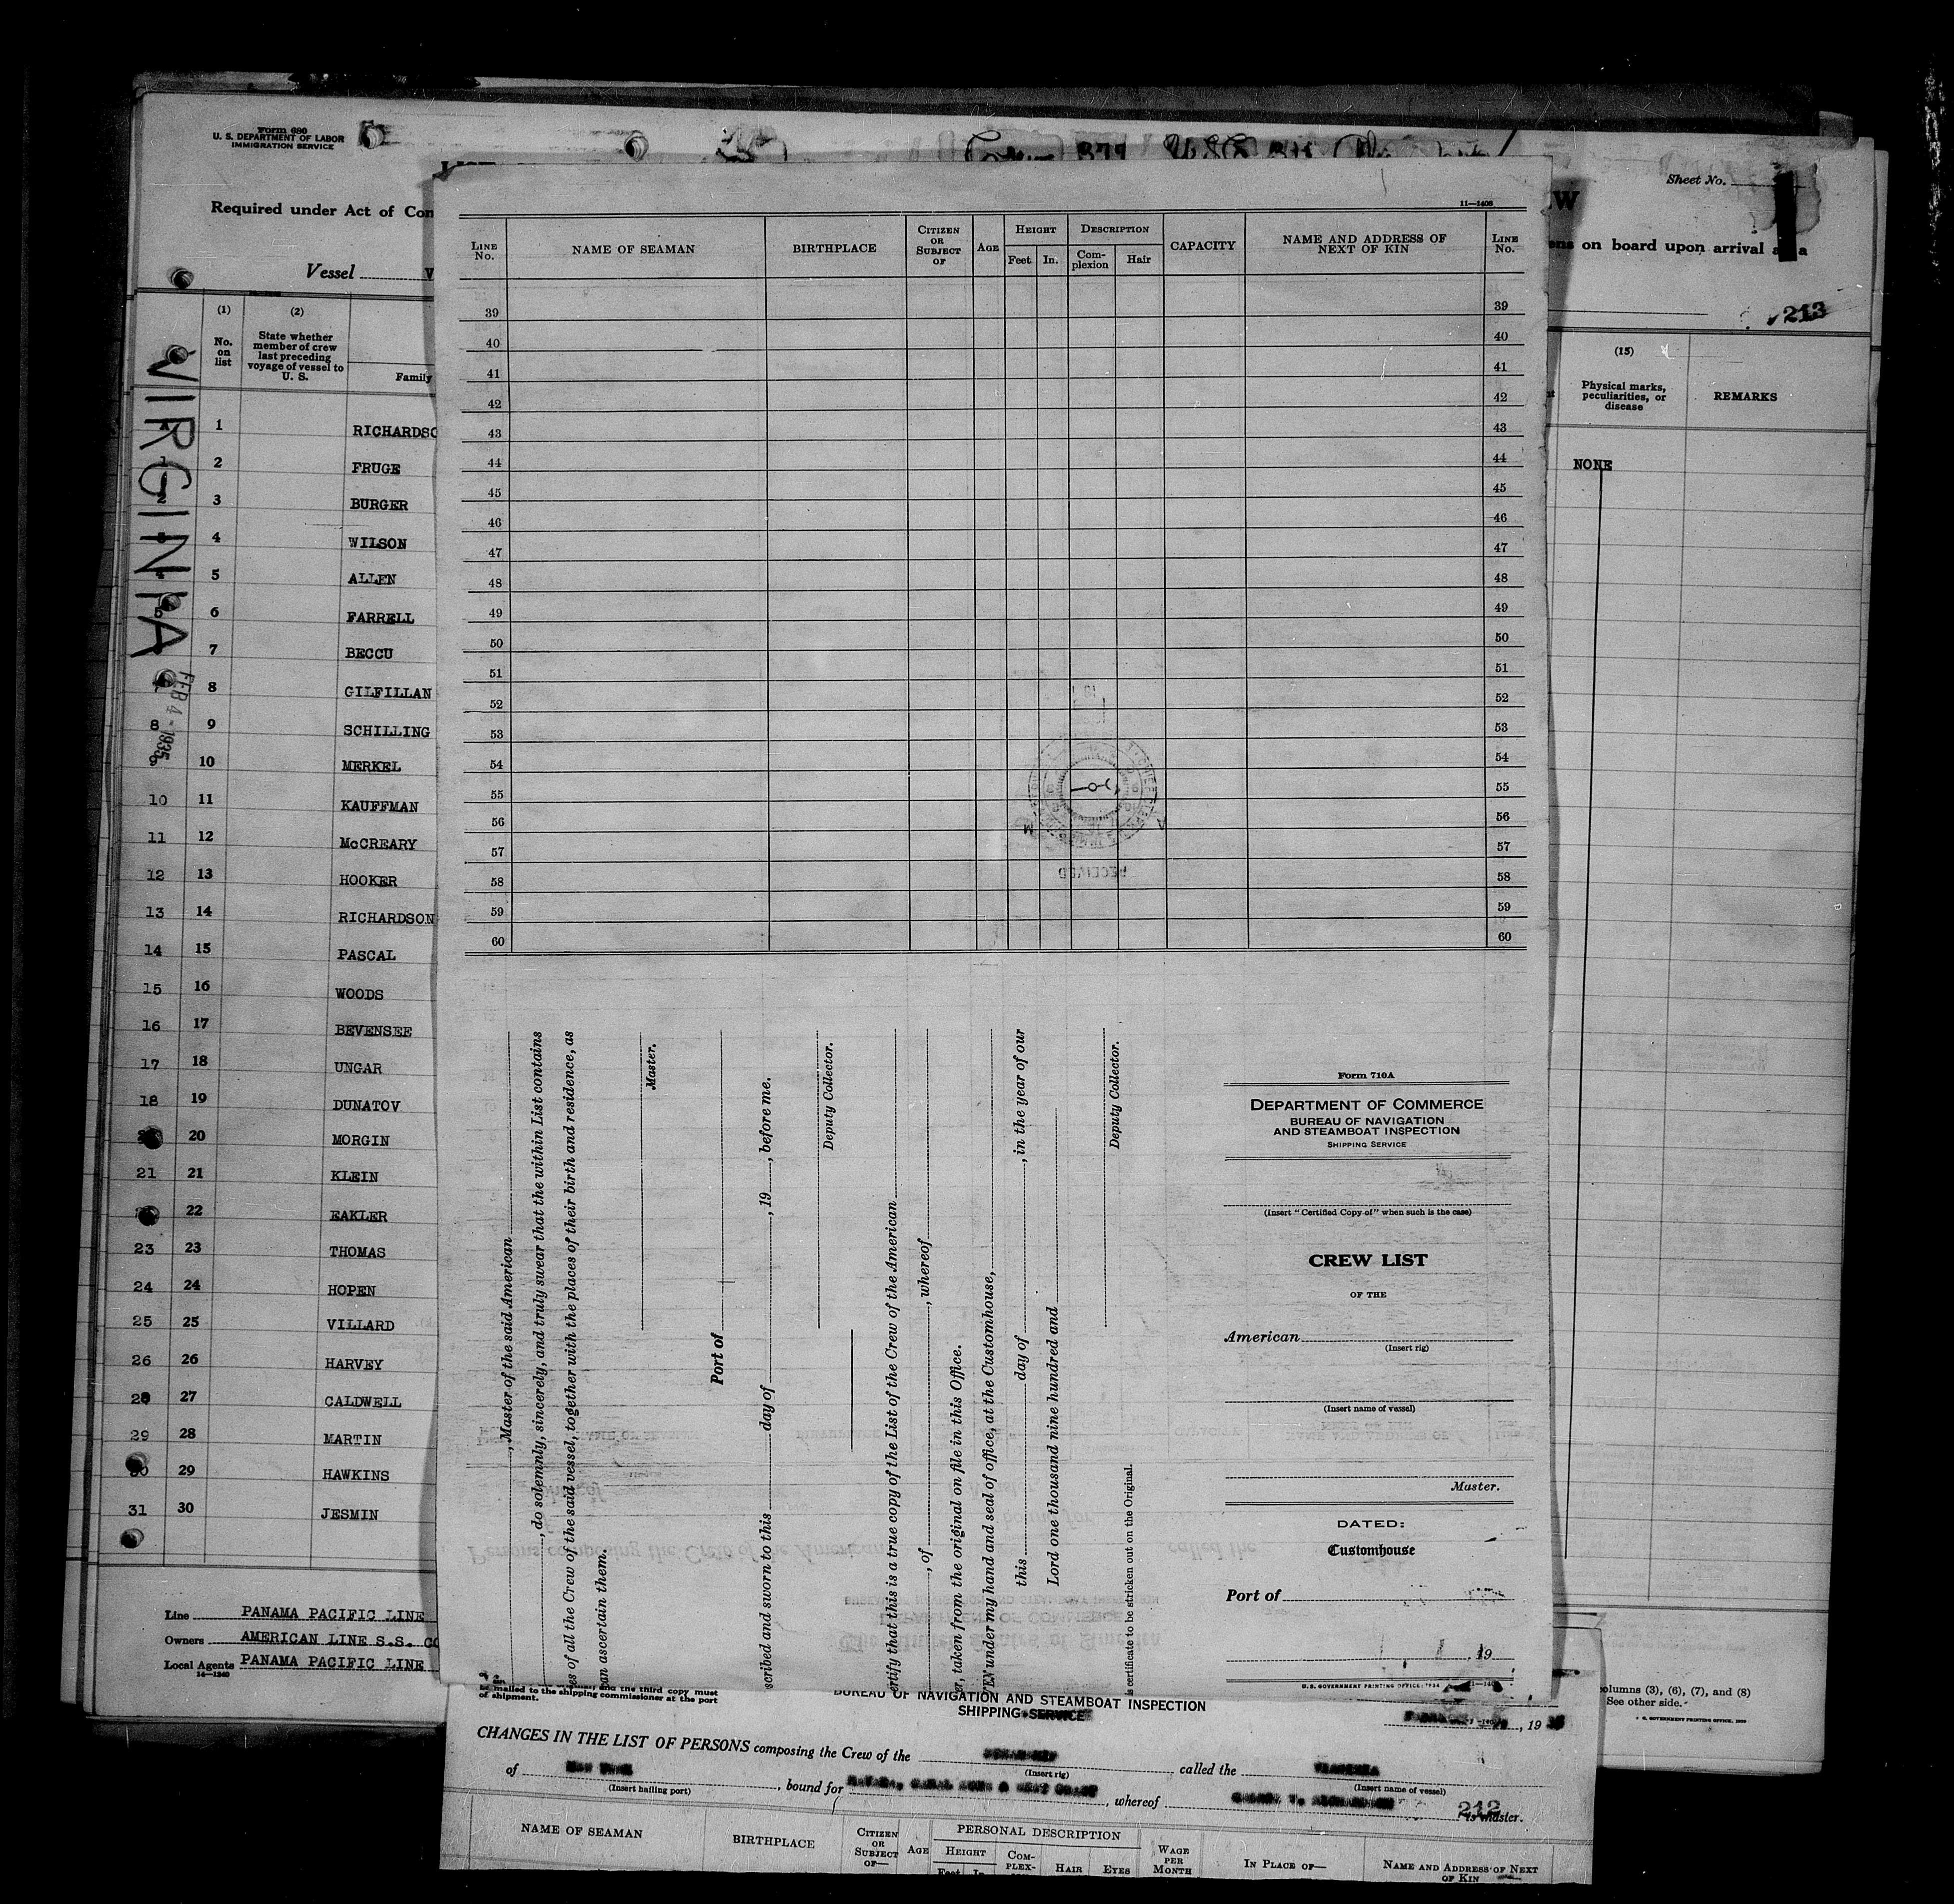 Form 680
U. S. DEPARTMENT OF LABOR
IMMIGRATION SERVICE
Sheet No.
Required under Act of Con
ens on board upon arrival at a
Vessel
213
(1)
No. on list
(2)
State whether member of crew last preceding voyage of vessel to U. S.
Family
(15)
Physical marks, peculiarities, or disease
REMARKS
NONE
VIRGINIA
FEB 4-1935
1 RICHARDSO
1 2 FRUGE
2 3 BURGER
3 4 WILSON
4 5 ALLEN
5 6 FARRELL
7 BECCU
7 8 GILFILLAN
8 9 SCHILLING
9 10 MERKEL
10 11 KAUFFMAN
11 12 McCREARY
12 13 HOOKER
13 14 RICHARDSON
14 15 PASCAL
15 16 WOODS
16 17 BEVENSEE
17 18 UNGAR
18 19 DUNATOV
20 MORGIN
21 21 KLEIN
22 EAKLER
23 23 THOMAS
24 24 HOPEN
25 25 VILLARD
26 26 HARVEY
28 27 CALDWELL
29 28 MARTIN
30 29 HAWKINS
31 30 JESMIN
Line PANAMA PACIFIC LINE
Owners AMERICAN LINE S.S. CO
Local Agents PANAMA PACIFIC LINE
14—1240
olumns (3), (6), (7), and (8)
See other side.
11—1406
LINE No.
NAME OF SEAMAN
BIRTHPLACE
CITIZEN OR SUBJECT OF
AGE
HEIGHT
Feet In.
DESCRIPTION
Complexion Hair
CAPACITY
NAME AND ADDRESS OF NEXT OF KIN
LINE No.
39 39
40 40
41 41
42 42
43 43
44 44
45 45
46 46
47 47
48 48
49 49
50 50
51 51
52 52
53 53
54 54
55 55
56 56
57 57
58 58
59 59
60 60
RECEIVED
, Master of the said American
, do solemnly, sincerely, and truly swear that the within List contains
es of all the Crew of the said vessel, together with the places of their birth and residence, as
an ascertain them.
Master.
Port of
scribed and sworn to this day of , 19 , before me.
Deputy Collector.
ertify that this is a true copy of the List of the Crew of the American
, of , whereof
er, taken from the original on file in this Office.
EN under my hand and seal of office, at the Customhouse,
this day of , in the year of our
Lord one thousand nine hundred and
Deputy Collector.
s certificate to be stricken out on the Original.
Form 710A
DEPARTMENT OF COMMERCE
BUREAU OF NAVIGATION
AND STEAMBOAT INSPECTION
SHIPPING SERVICE
(Insert "Certified Copy of" when such is the case)
CREW LIST
OF THE
American
(Insert rig)
(Insert name of vessel)
Master.
DATED:
Customhouse
Port of
, 19
U. S. GOVERNMENT PRINTING OFFICE: 1934
and the third copy must
be mailed to the shipping commissioner at the port
of shipment.
BUREAU OF NAVIGATION AND STEAMBOAT INSPECTION
SHIPPING SERVICE
, 19
CHANGES IN THE LIST OF PERSONS composing the Crew of the called the VIRGINIA
(Insert rig)
(Insert name of vessel)
of NEW YORK, bound for HAVANA, CANAL ZONE & WEST COAST, whereof
(Insert hailing port)
212
is master.
NAME OF SEAMAN
BIRTHPLACE
CITIZEN OR SUBJECT OF—
AGE
PERSONAL DESCRIPTION
HEIGHT
Feet In.
COM-PLEX-
HAIR
EYES
WAGE PER MONTH
IN PLACE OF—
NAME AND ADDRESS OF NEXT OF KIN